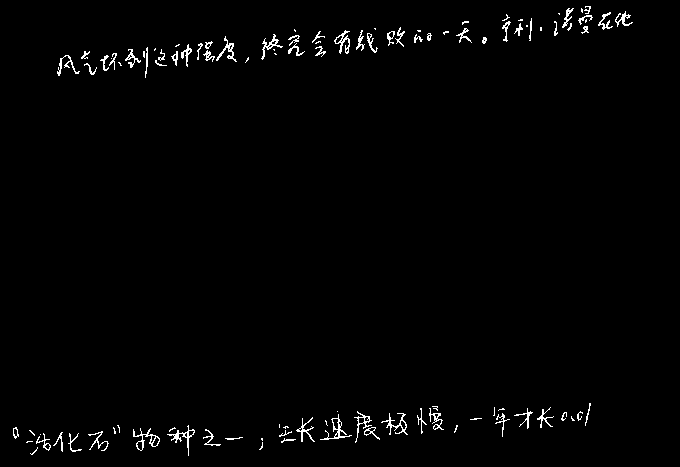 风气坏到这种强度，终究会有线败的一天。亨利·诺曼在他
“活化石”物种之一，生长速度极慢，一年才长0.01